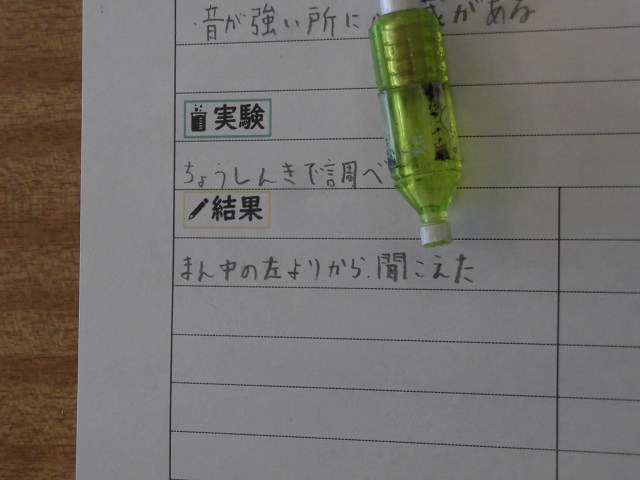 音が強い所に心ぞうがある
実験
ちょうしんきで調べ
結果
まん中の左よりから.聞こえた